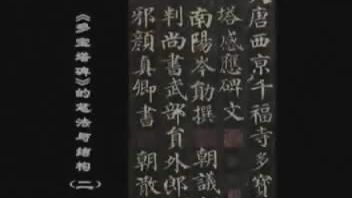 《多宝塔碑》的笔法与结构
(二)
唐西京千福寺多寶
塔感應碑文
南陽岑勛撰 朝議
判尚書武部員外郎
邪顏真卿書 朝散